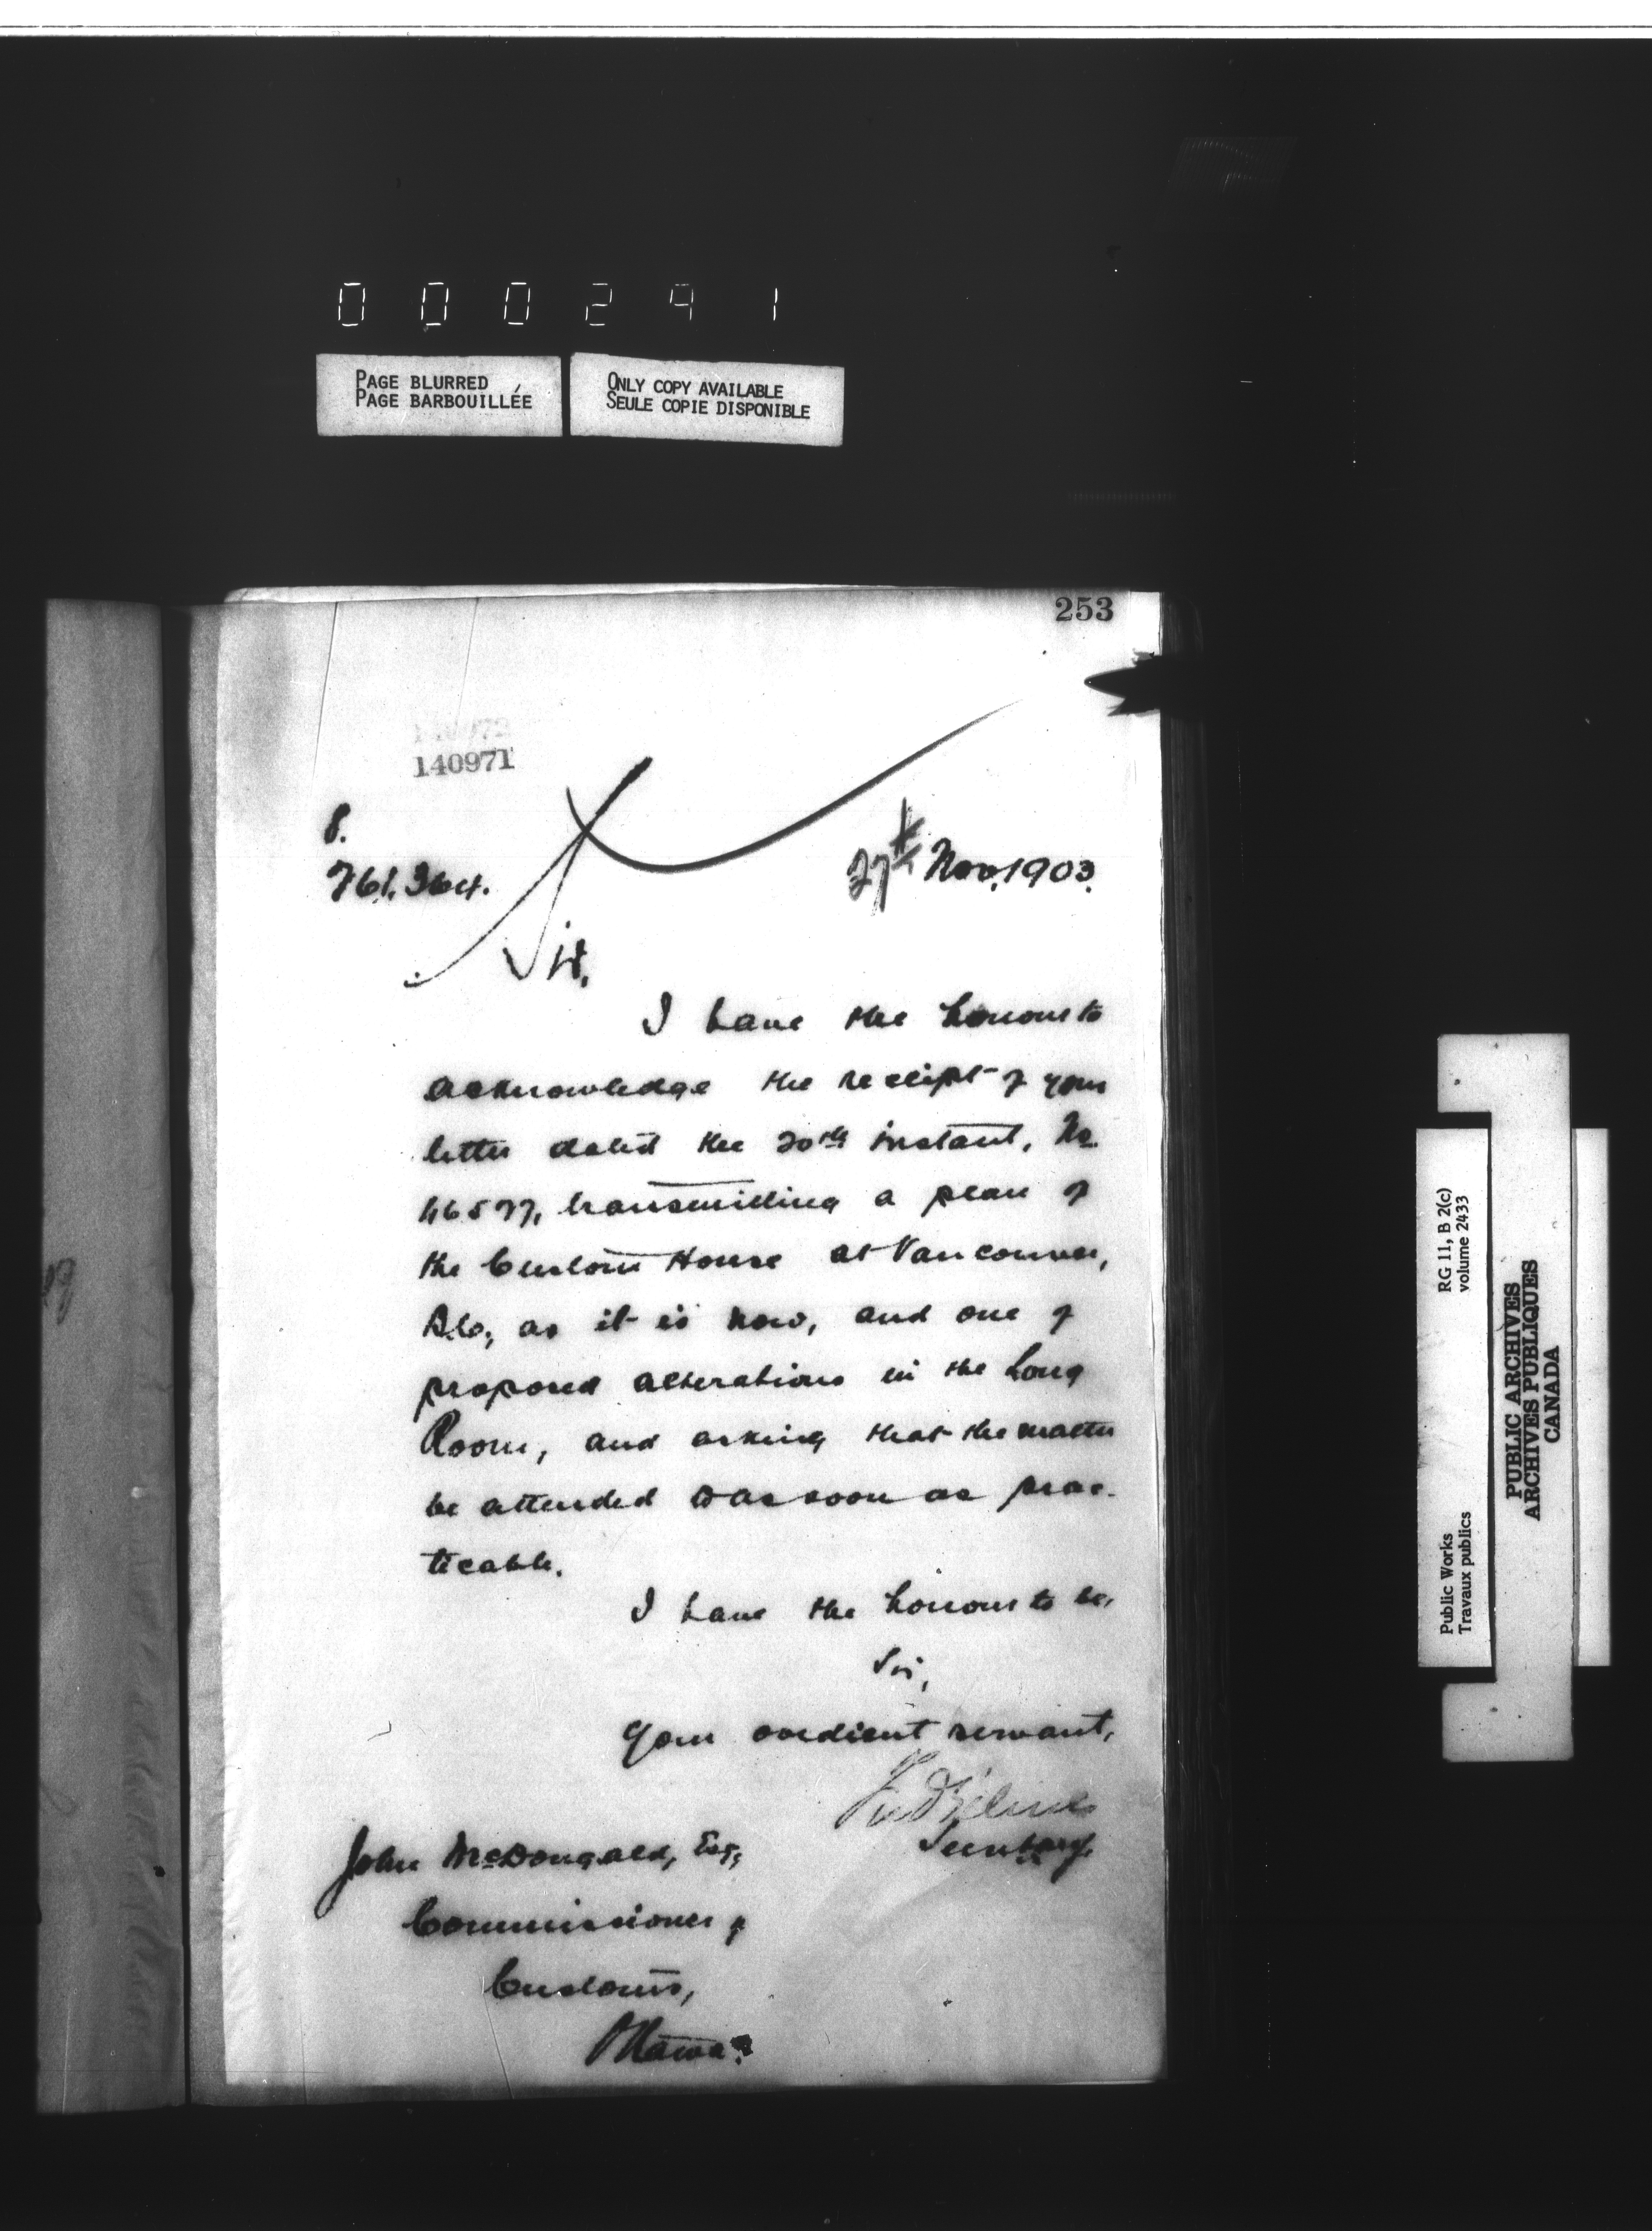 000291
PAGE BLURRED
PAGE BARBOUILLÉE
ONLY COPY AVAILABLE
SEULE COPIE DISPONIBLE
253
140972
140971
8.
761.364.
27th Nov. 1903.
Sir,
I have the honour to
acknowledge the receipt of your
letter dated the 20th instant, No.
46577, transmitting a plan of
the Custom House at Vancouver,
B.C., as it is now, and one of
proposed alterations in the Long
Room, and asking that the matter
be attended to as soon as prac-
ticable.
I have the honour to be,
Sir,
Your obedient servant,
Secretary.
John McDougald, Esq,
Commissioner of
Customs,
Ottawa.
Public Works
Travaux publics
RG 11, B 2(c)
volume 2433
PUBLIC ARCHIVES
ARCHIVES PUBLIQUES
CANADA